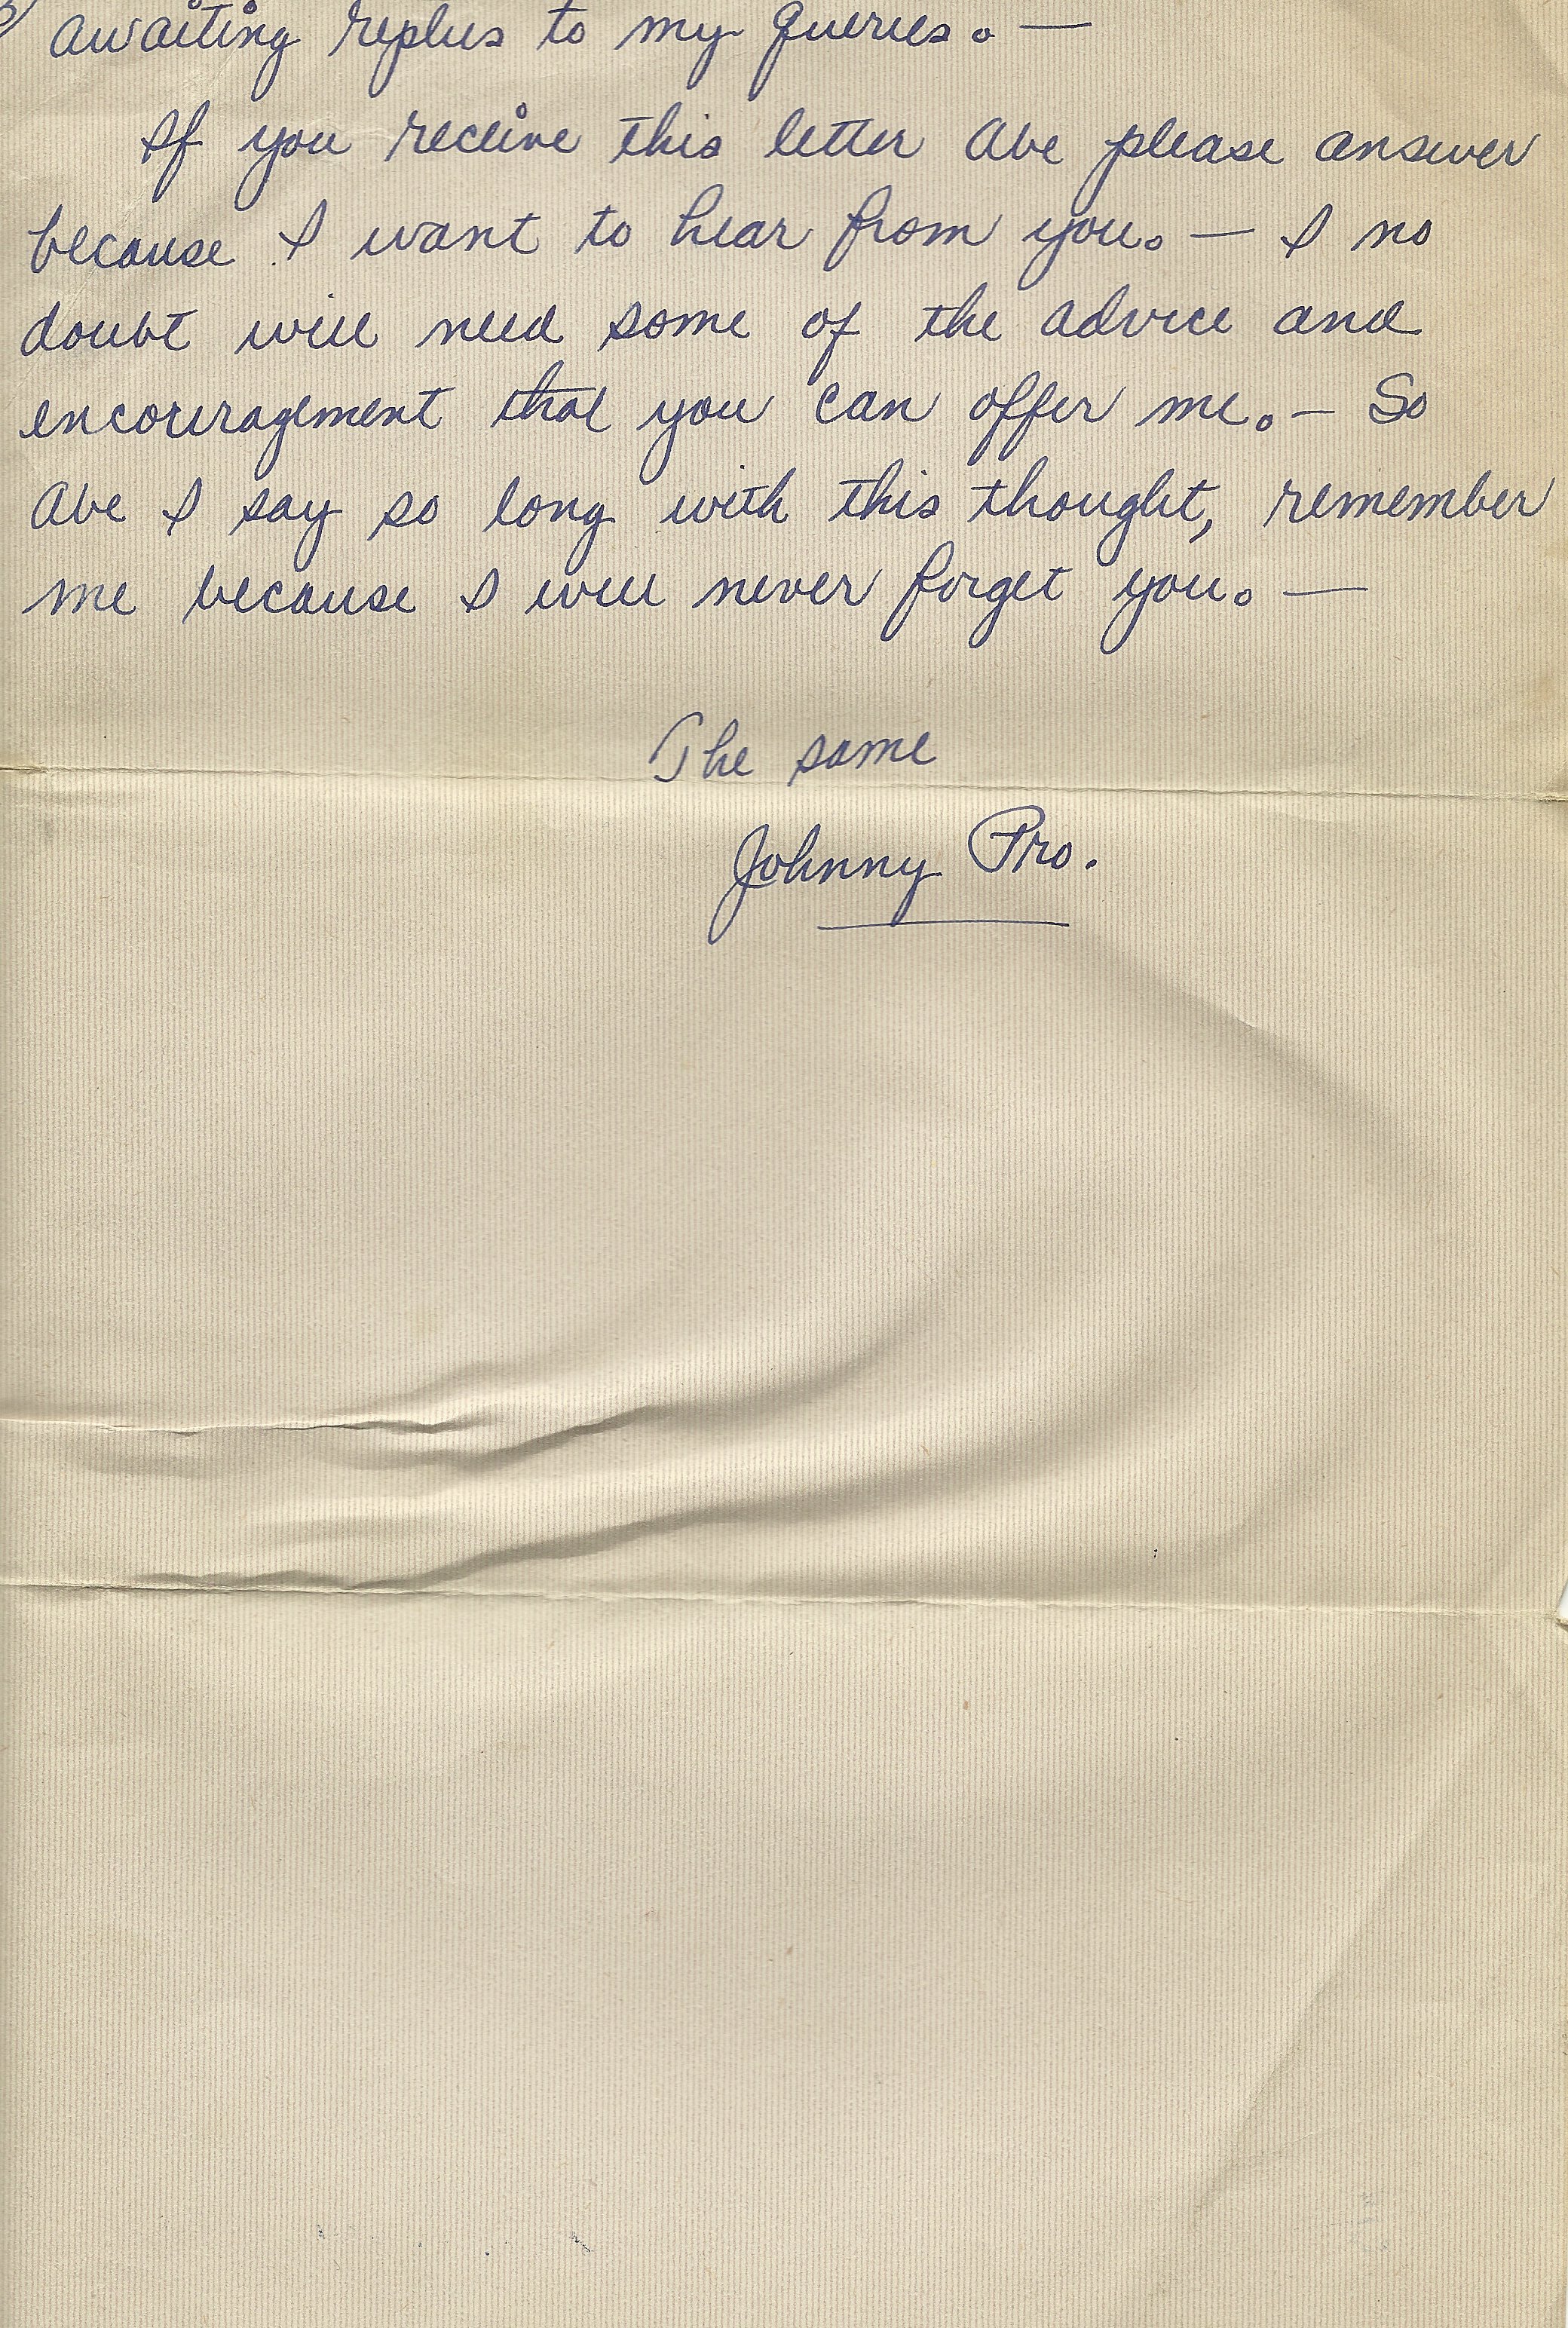 awaiting replies to my queries. —
If you receive this letter Abe please answer
because I want to hear from you. — I no
doubt will need some of the advice and
encouragement that you can offer me. — So
Abe I say so long with this thought, remember
me because I will never forget you. —
The same
Johnny Pro.